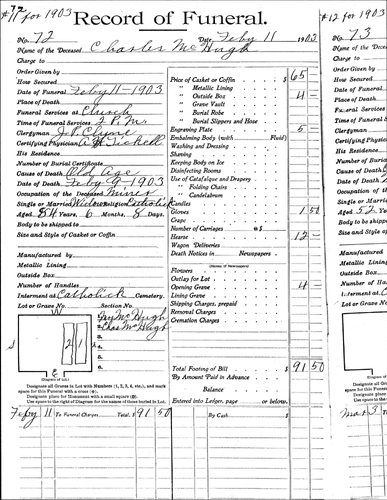 #12 for 1903
Record of Funeral.
No. 72 Date Feby 11 1903
Name of the Deceased Charles McHugh
Charge to
Order Given by
How Secured
Date of Funeral Feby 11-1903
Place of Death
Funeral Services at Church
Time of Funeral Services 2 P.M.
Clergyman J. P. Clyne
Certifying Physician
His Residence
Number of Burial Certificate
Cause of Death Old Age
Date of Death Feby 9-1903
Occupation of the Deceased Miner
Single or Married Widow Religion Catholick
Aged 84 Years, 6 Months, 8 Days
Body to be shipped to
Size and Style of Casket or Coffin
Manufactured by
Metallic Lining
Outside Box
Number of Handles
Interment at Catholick Cemetery.
Lot or Grave No. Section No.
Price of Casket or Coffin $ 65 -
" Metallic Lining
" Outside Box 4 -
" Grave Vault
" Burial Robe
" Burial Slippers and Hose
Engraving Plate 5 -
Embalming Body (with Fluid)
Washing and Dressing
Shaving
Keeping Body on Ice
Disinfecting Rooms
Use of Catafalque and Drapery
" Folding Chairs
" Candelabrum
Candles
Gloves 1 50
Crape
Number of Carriages @ $
Hearse 12 -
Wagon Deliveries
Death Notices in Newspapers
(Names of Newspapers)
Flowers
Outlay for Lot
Opening Grave 4 -
Lining Grave
Shipping Charges, prepaid
Removal Charges
Cremation Charges
N
S
W
E
2 1
McHugh
Chas McHugh
(Diagram of Lot)
Designate all Graves in Lot with Numbers (1, 2, 3, 4, etc.), and mark
space for this Funeral with a cross
Designate place for Monument with a small square
Use space to the right of Diagram for the names of those buried in Lot.
Total Footing of Bill $ 91 50
By Amount Paid in Advance
Balance
Entered into Ledger, page or below.
Feby 11 To Funeral Charges Total, $ 91 50
By Cash $
#12 for 1903
No. 73
Name of the
Charge to
Order Given
How Secured
Date of Funeral
Place of Death
Funeral Serv
Time of Fun
Clergyman
Certifying
His Residence
Number of B
Cause of Death
Date of Death
Occupation
Single or Ma
Aged 52 Ye
Body to be sh
Size and Style
Manufactured
Metallic Lin
Outside Box
Number of H
Interment at
Lot or Grave
Designate all
space for this F
Designate place
Use space to the